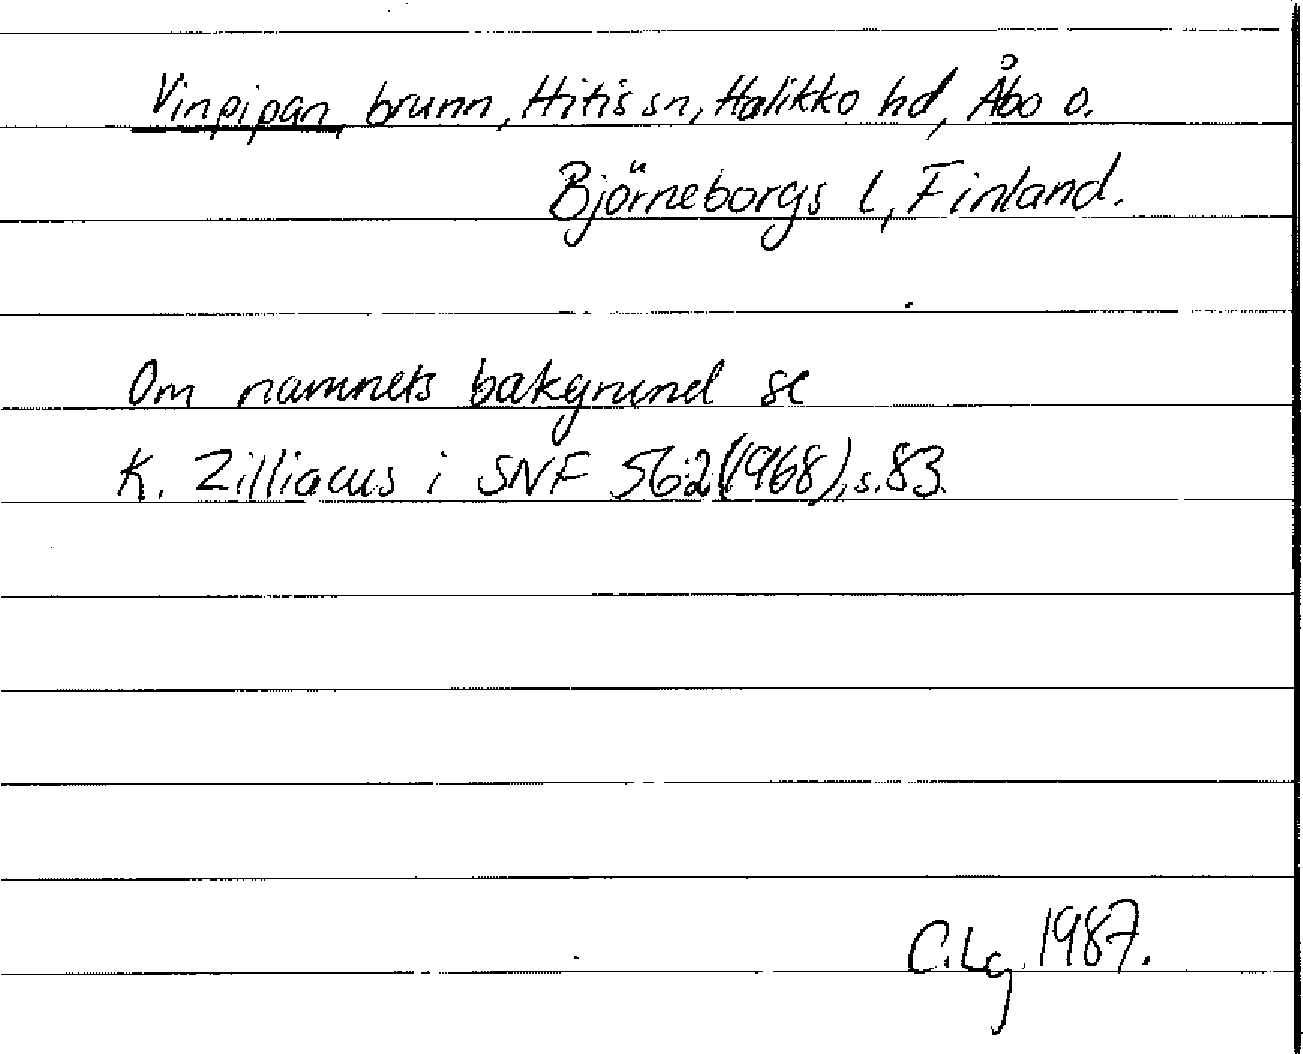 Vinpipan, brunn, Hitis sn, Halikko hd, Åbo o.
Björneborgs l, Finland.
Om namnets bakgrund se
K. Zilliacus i SNF 56:2(1968), s. 83.
C.Lg 1987.